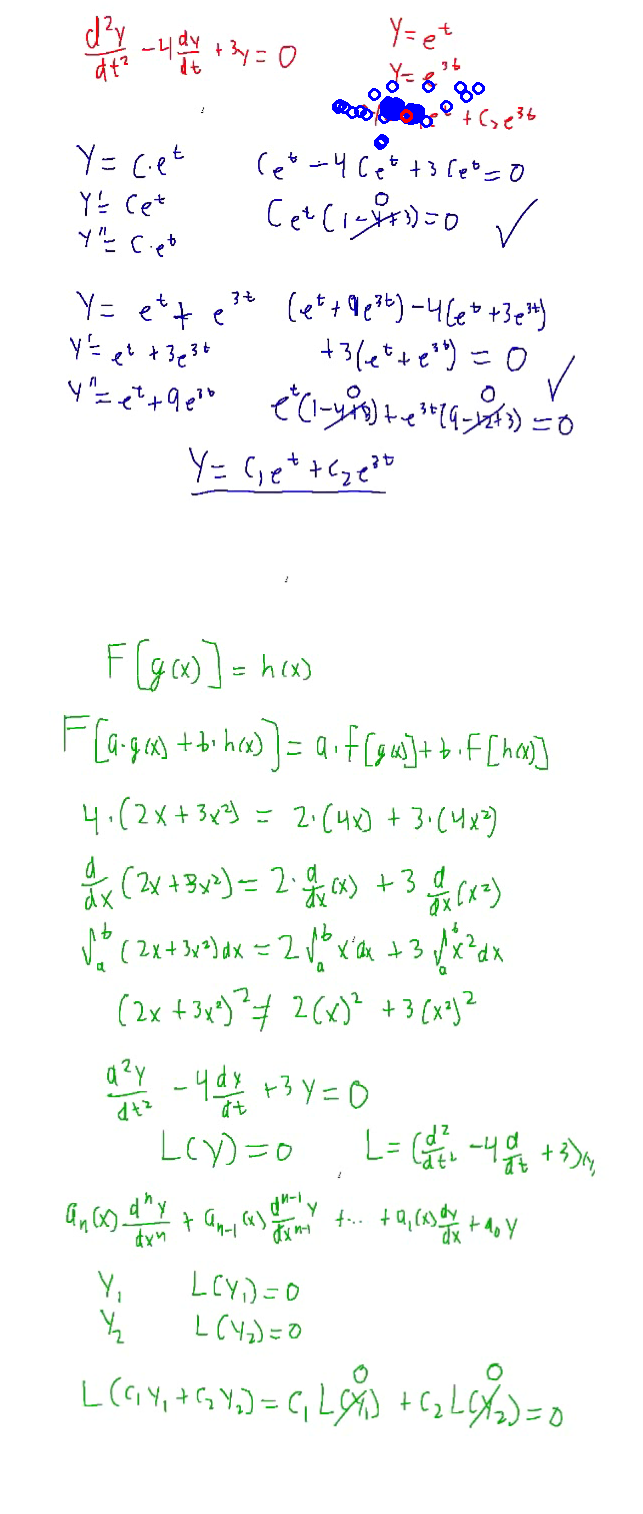 d²y/dt² - 4 dy/dt + 3y = 0
y = e^t
y = e^3t
+ C₂e^3t
y = C·e^t
Ce^t - 4Ce^t + 3Ce^t = 0
y' = Ce^t
Ce^t(1-4+3) = 0 ✓
0
y'' = C·e^t
y = e^t + e^3t
(e^t + 9e^3t) - 4(e^t + 3e^3t)
y' = e^t + 3e^3t
+3(e^t + e^3t) = 0 ✓
y'' = e^t + 9e^3t
0 0
e^t(1-4+3) + e^3t(9-12+3) = 0
y = C₁e^t + C₂e^3t
F[g(x)] = h(x)
F[a·g(x) + b·h(x)] = a·F[g(x)] + b·F[h(x)]
4·(2x + 3x²) = 2·(4x) + 3·(4x²)
d/dx (2x + 3x²) = 2·d/dx (x) + 3 d/dx (x²)
∫_a^b (2x + 3x²)dx = 2∫_a^b x dx + 3∫_a^b x² dx
(2x + 3x²)² ≠ 2(x)² + 3(x²)²
d²y/dt² - 4 dy/dt + 3y = 0
L(y) = 0 L = (d²/dt² - 4 d/dt + 3)
aₙ(x) dⁿy/dxⁿ + aₙ₋₁(x) dⁿ⁻¹y/dxⁿ⁻¹ + ... + a₁(x) dy/dx + a₀y
y₁ L(y₁) = 0
y₂ L(y₂) = 0
0 0
L(c₁y₁ + c₂y₂) = c₁L(y₁) + c₂L(y₂) = 0